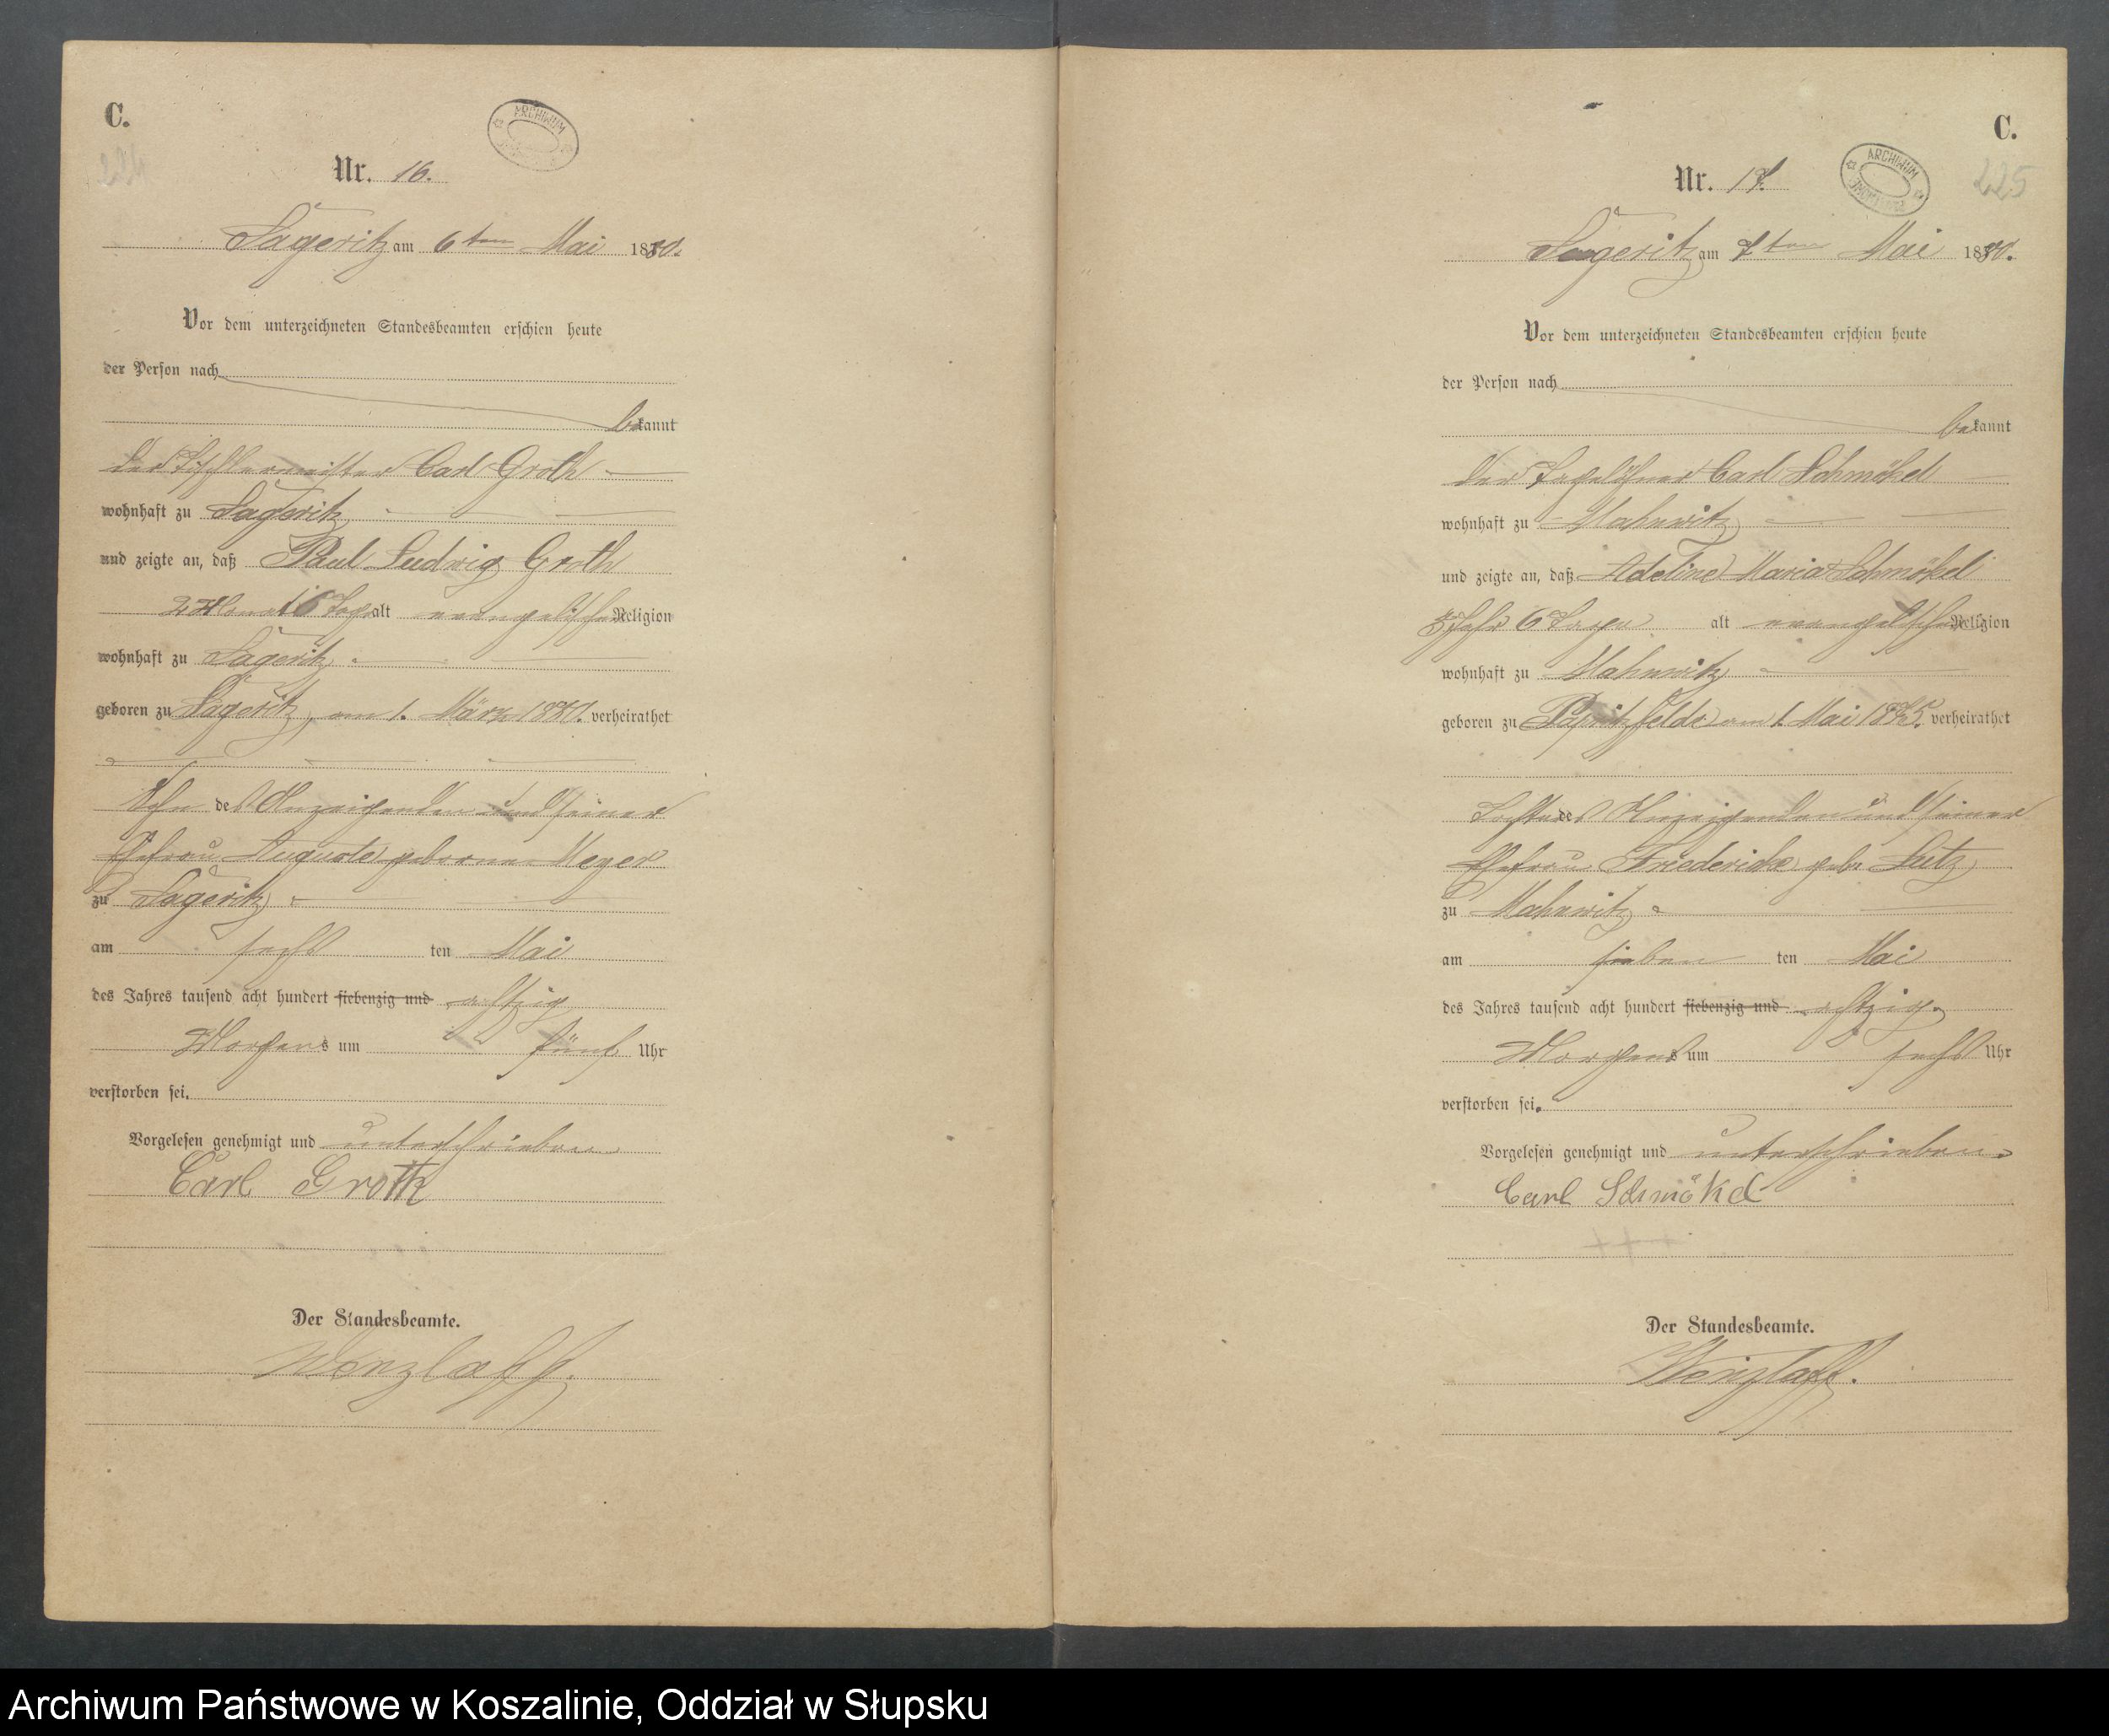 C.
224
ARCHIWUM
Nr. 16.
Sageritz am 6ten Mai 1880.
Vor dem unterzeichneten Standesbeamten erschien heute
der Person nach
bekannt
der Tischlermeister Carl Groth
wohnhaft zu Sageritz
und zeigte an, daß Paul Ludwig Groth
2 Monat 6 Tage alt evangelischer Religion
wohnhaft zu Sageritz
geboren zu Sageritz, am 1. März 1880. verheirathet
Sohn des Anzeigenden und seiner
Ehefrau Auguste geborene Meyer
zu Sageritz
am sechs ten Mai
des Jahres tausend acht hundert siebenzig und achtzig
Morgens um fünf Uhr
verstorben sei.
Vorgelesen genehmigt und unterschrieben
Carl Groth
Der Standesbeamte.
Wenzlaff.
C.
225
ARCHIWUM
Nr. 17.
Sageritz am 7ten Mai 1880.
Vor dem unterzeichneten Standesbeamten erschien heute
der Person nach
bekannt
der Tagelöhner Carl Schmökel
wohnhaft zu Mahnwitz
und zeigte an, daß Adeline Maria Schmökel
Jahr 6 Tage alt evangelischer Religion
wohnhaft zu Mahnwitz
geboren zu Papritzfelde am 1. Mai verheirathet
Tochter des Anzeigenden und seiner
Ehefrau Friedericke geb. Lutz
zu Mahnwitz
am sieben ten Mai
des Jahres tausend acht hundert siebenzig und achtzig.
Morgens um sechs Uhr
verstorben sei.
Vorgelesen genehmigt und unterschrieben.
Carl Schmökel
Der Standesbeamte.
Wenzlaff.
Archiwum Państwowe w Koszalinie, Oddział w Słupsku